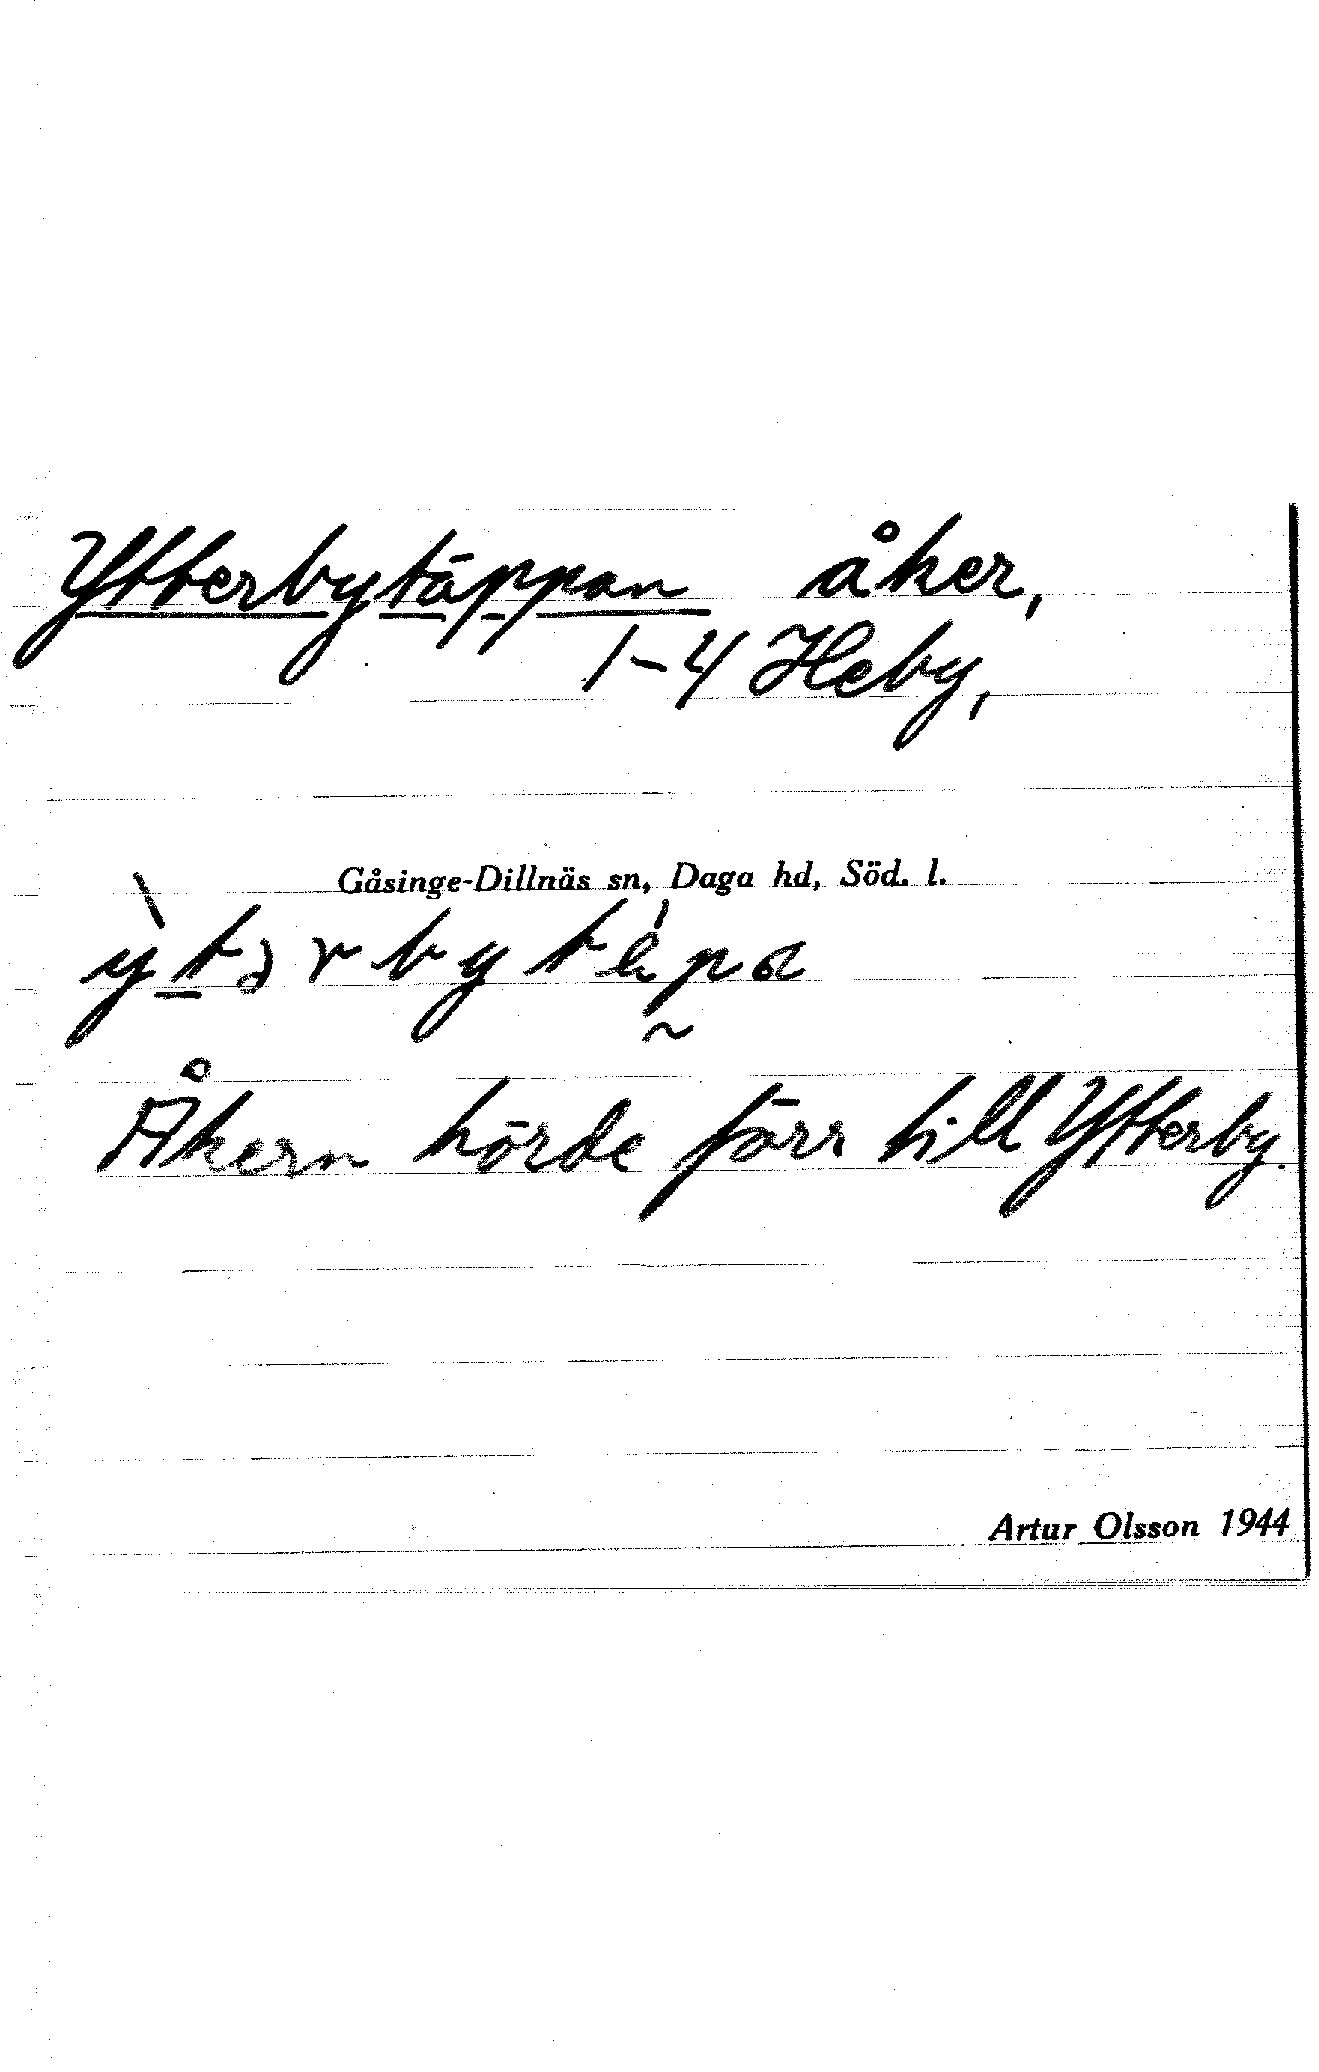 Ytterbytäppan åker,
1-4 Heby,
Gåsinge-Dillnäs sn, Daga hd, Söd. l.
Åkern hörde förr till Ytterby.
Artur Olsson 1944